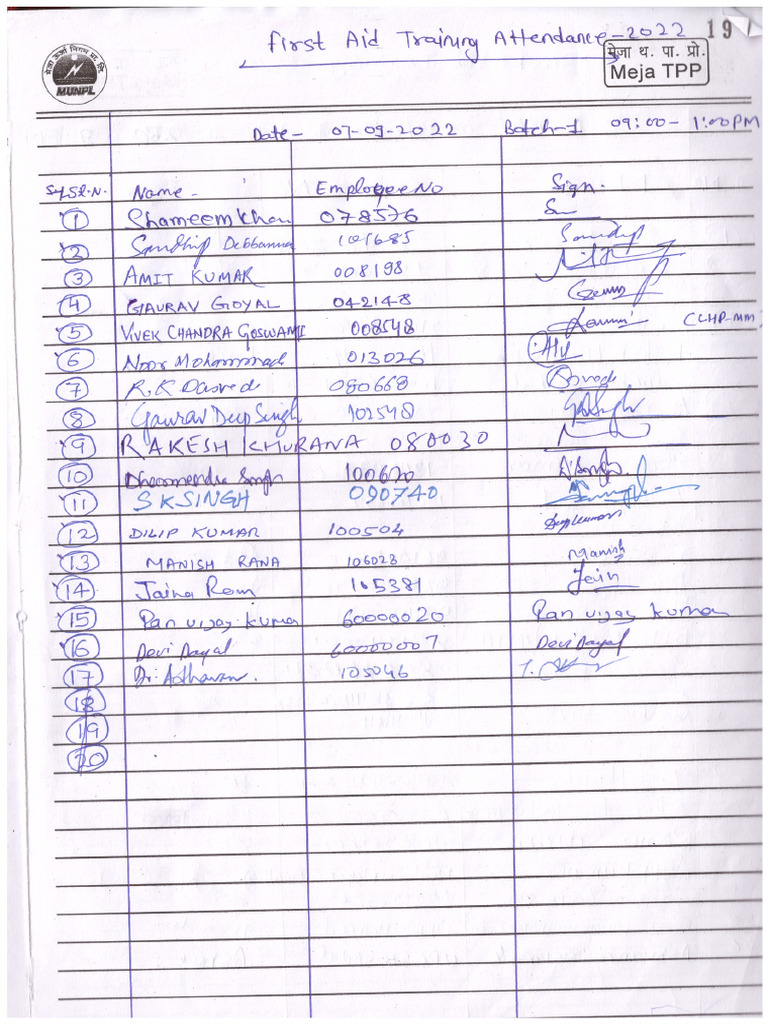 First Aid Training Attendance-2022
19
मेजा ऊर्जा निगम प्रा. लि.
MUNPL
मेजा थ. पा. प्रो.
Meja TPP
Date- 07-09-2022 Batch-1 09:00- 1:00PM
Sl.N. Name - Employee No Sign.
1 Shameem Khan 078576
2 Sandhip Debbarma 101685 Sandip
3 AMIT KUMAR 008198
4 GAURAV GOYAL 042148
5 VIVEK CHANDRA GOSWAMI 008548 (CHP-MM)
6 Noor Mohammad 013026
7 R.K 080668
8 Gaurav Deep Singh 102548
9 RAKESH KHURANA 080030
10 Dharmendra Singh 100670
11 SKSINGH 090740
12 DILIP KUMAR 100504 Dilip kumar
13 MANISH RANA 106023 Manish
14 Jaina Ram 105381 Jain
15 Ran vijay kumar 60000020 Ran vijay kumar
16 Devi Dayal 60000007 Devi Dayal
17 Dr. 105046
18
19
20